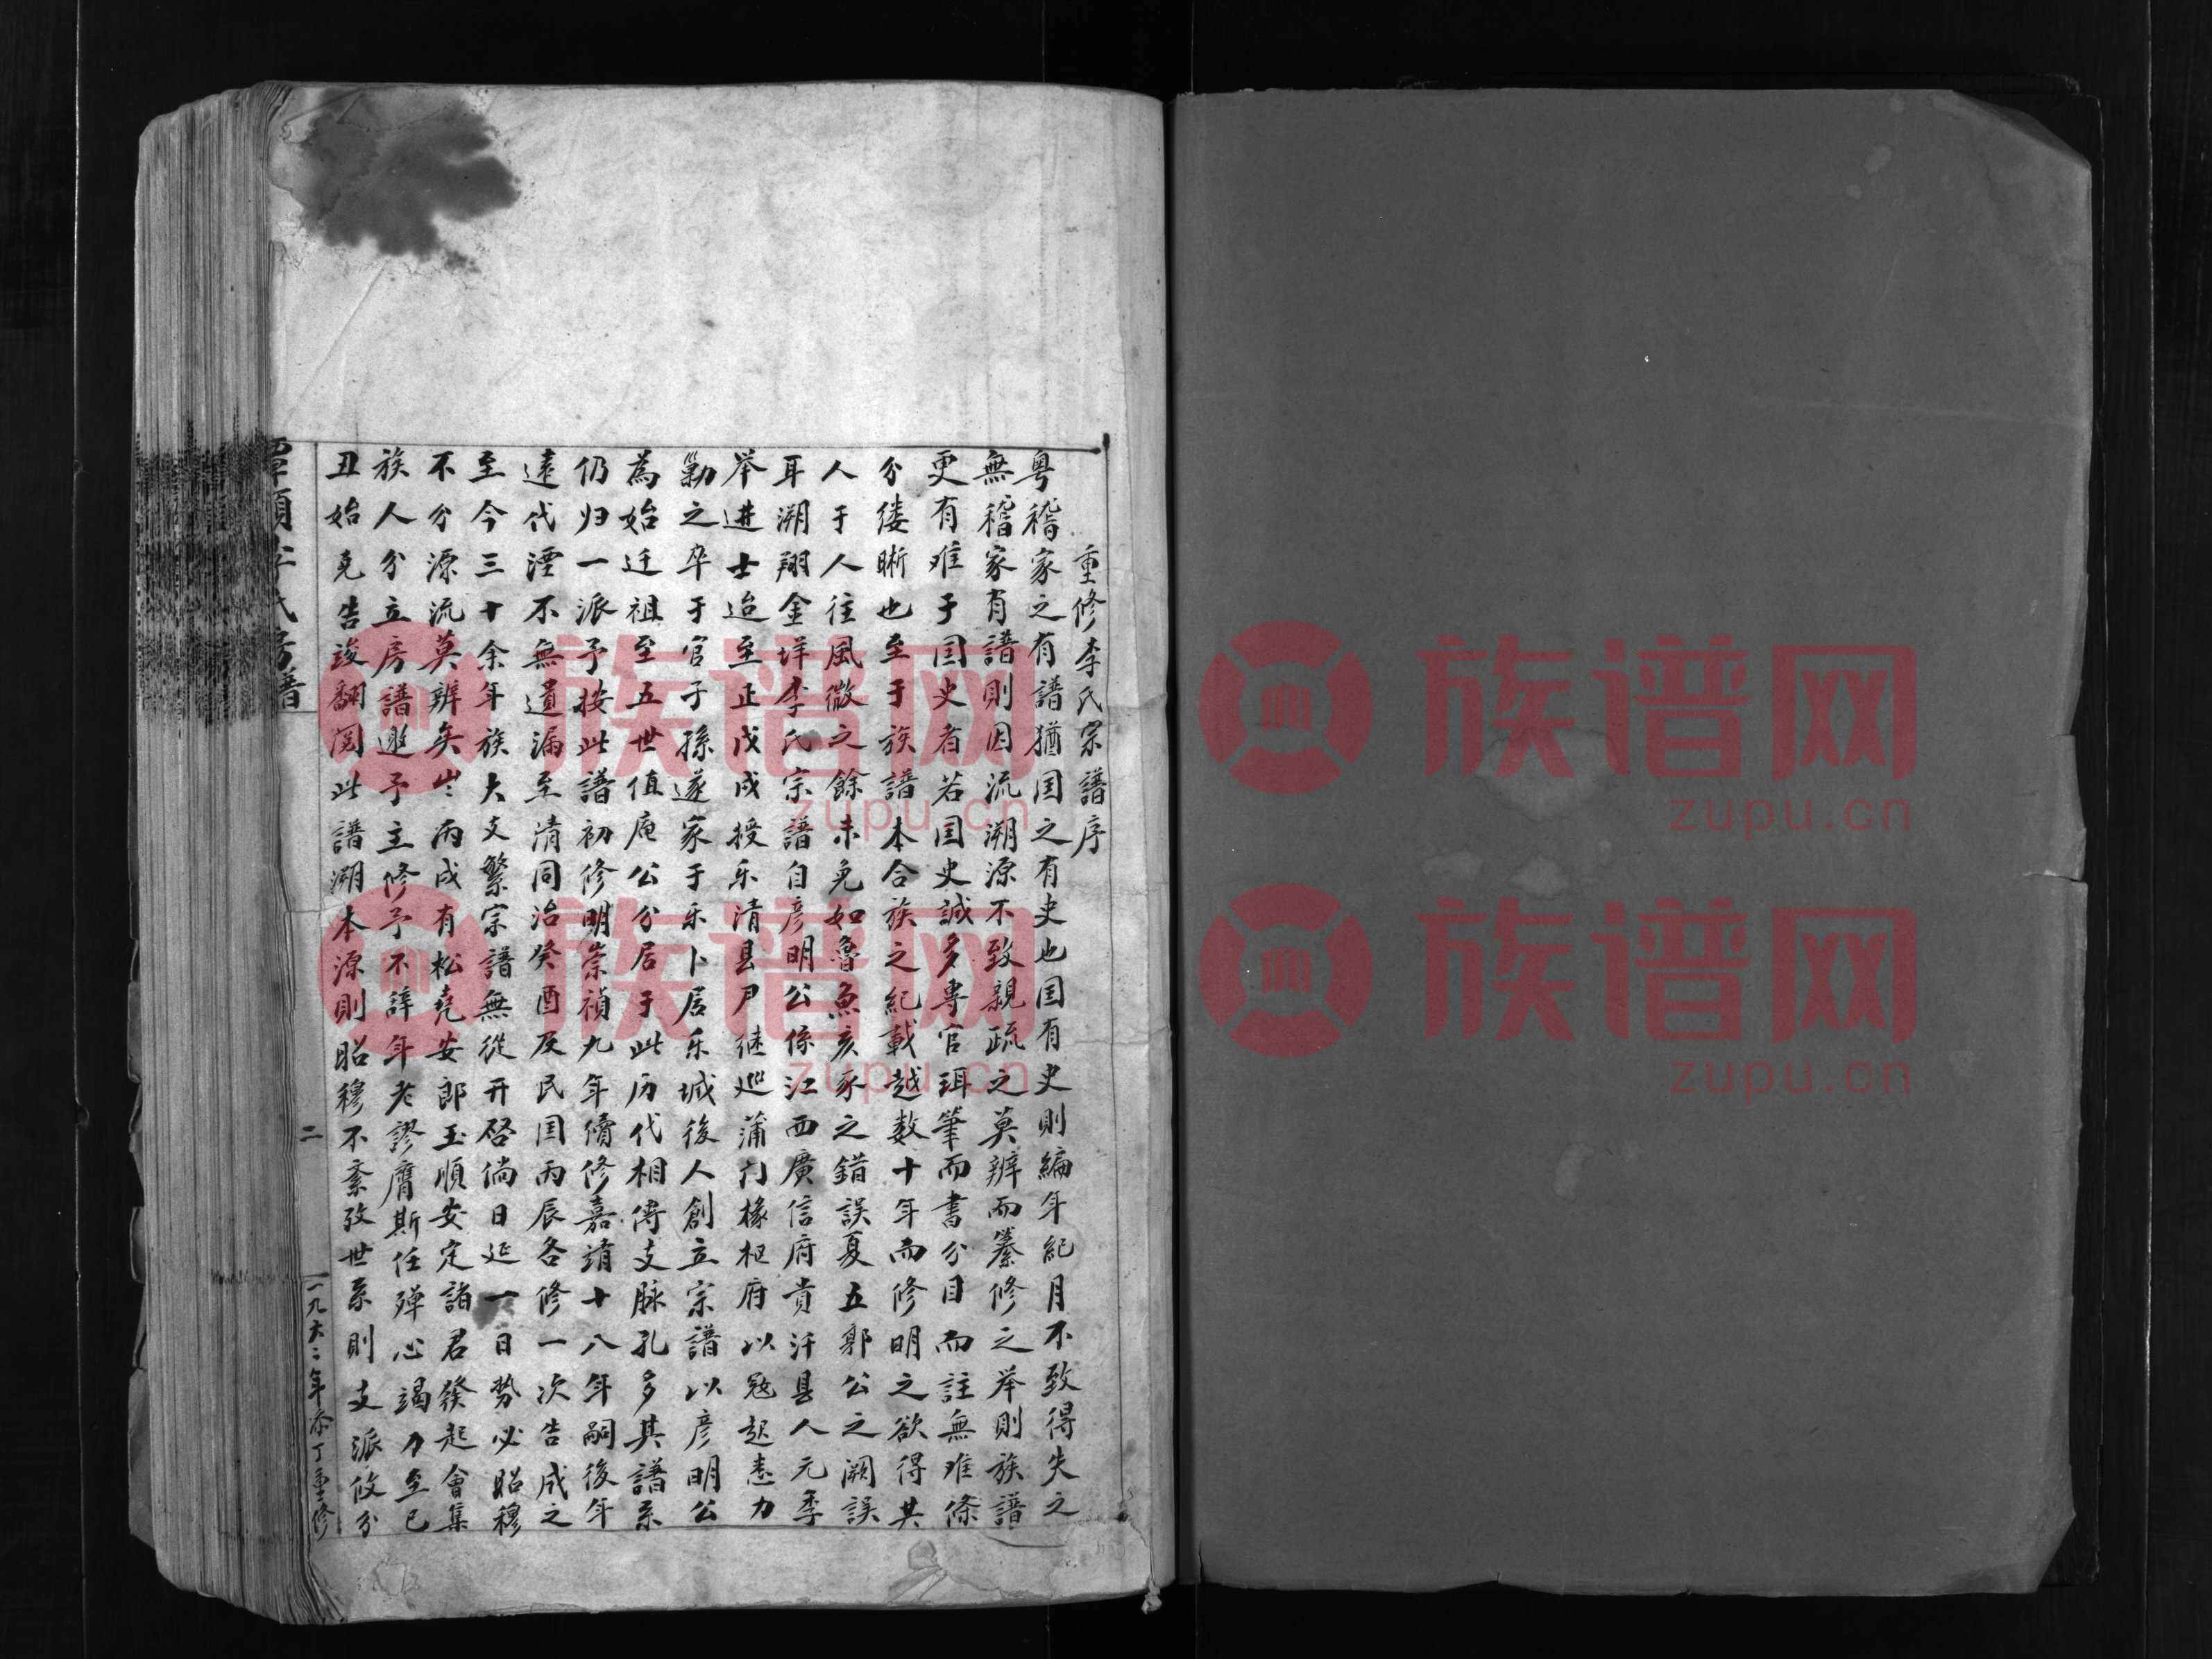 重修李氏宗譜序
粵稽家之有譜猶国之有史也国有史則編年紀月不致得失之
無稽家有譜則因流溯源不致親疏之莫辨而纂修之举則族譜
更有难于国史者若国史誠多專官珥筆而書分目而註無难條
分缕晰也至于族譜本合族之紀載越数十年而修明之欲得其
人于人往風微之餘未免如魯魚亥豕之錯誤夏五郭公之闕誤
耳溯翔金垟李氏宗譜自彦明公係江西廣信府貴汗县人元季
举进士迨至正戊戌授乐清县尹继巡蒲门椽枢府以冦起悉力
勦之卒于官子孫遂家于乐卜居乐城後人創立宗譜以彦明公
為始迁祖至五世值庵公分居于此历代相傳支脉孔多其譜系
仍归一派予按此譜初修明崇禎九年續修嘉靖十八年嗣後年
遠代湮不無遺漏至清同治癸酉及民国丙辰各修一次告成之
至今三十余年族大支繁宗譜無從开啓倘日延一日势必昭穆
不分源流莫辨矣岁丙戌有松堯安郎玉順安定諸君發起會集
族人分立房譜邀予主修予不辞年老謬膺斯任殫心竭力至己
丑始克告竣翻閲此譜溯本源則昭穆不紊攷世系則支派攸分
李氏房譜
二
一九六二年添丁重修
族谱网
zupu.cn
族谱网
zupu.cn
族谱网
zupu.cn
族谱网
zupu.cn